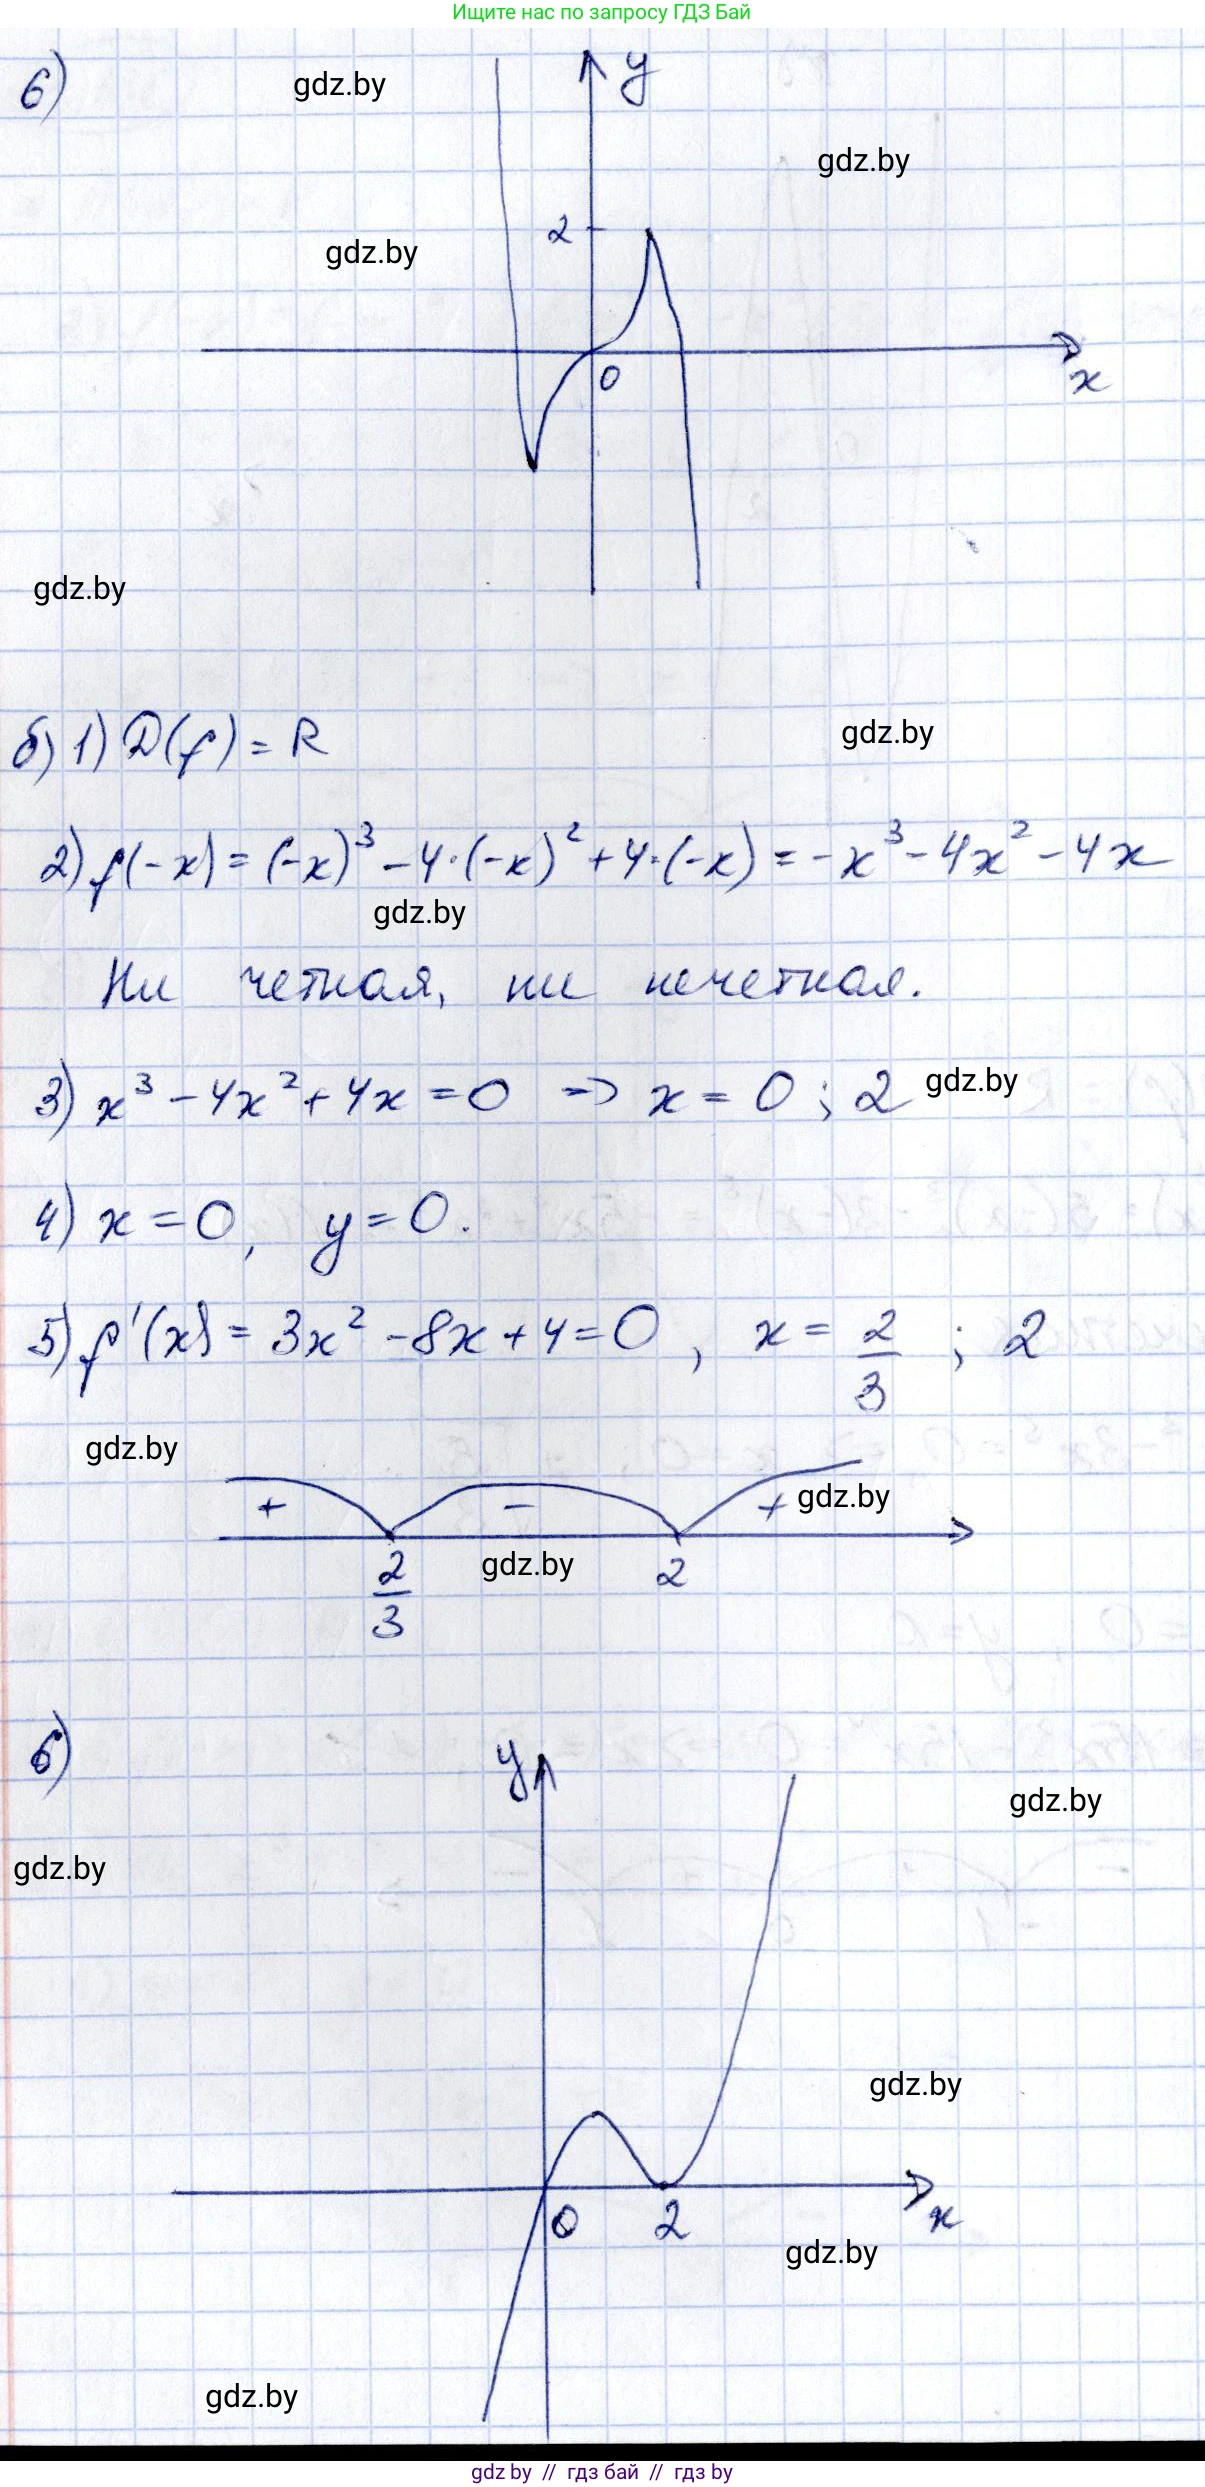 Ищите нас по запросу ГДЗ Бай
6)
gdz.by
y
gdz.by
2
gdz.by
0
x
gdz.by
б) 1) D(f) = R
gdz.by
2) f(-x) = (-x)³ - 4·(-x)² + 4·(-x) = -x³ - 4x² - 4x
gdz.by
Ни четная, ни нечетная.
3) x³ - 4x² + 4x = 0 => x = 0 ; 2
gdz.by
4) x = 0, y = 0.
5) f'(x) = 3x² - 8x + 4 = 0 , x = 2/3 ; 2
gdz.by
+ - +
gdz.by
2/3
gdz.by
2
6)
y
gdz.by
gdz.by
gdz.by
0 2 x
gdz.by
gdz.by
gdz by // гдз бай // гдз by